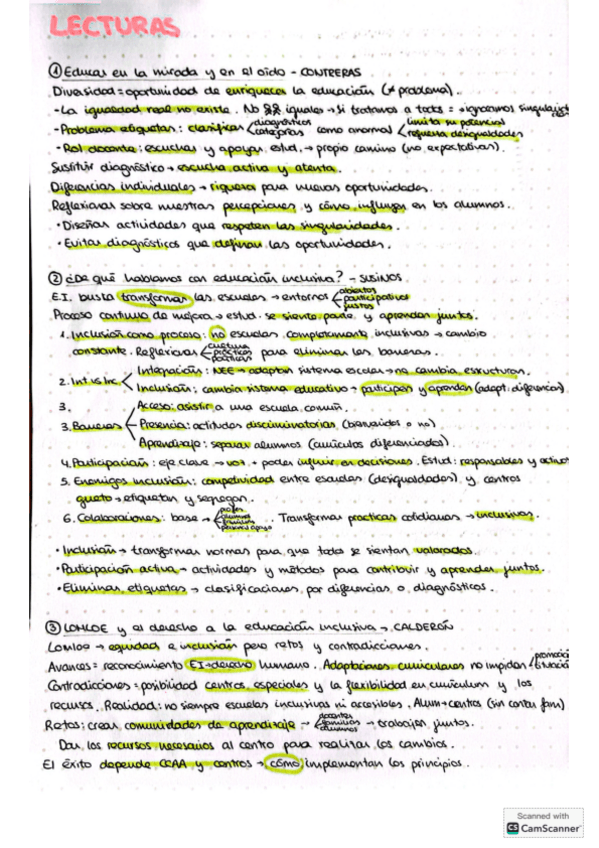 LECTURAS
① Educar en la mirada y en el oído - CONTRERAS
Diversidad = oportunidad de enriquecer la educación (≠ problema).
- La igualdad real no existe. No iguales → si tratamos a todos = → ignoramos singularidad
- Problema etiquetas: clasificar diagnósticos categorías como anormal limita su potencial refuerza desigualdades
- Rol docente: escuchar y apoyar estud. → propio camino (no expectativas).
Sustituir diagnóstico → escucha activa y atenta.
Diferencias individuales → riqueza para nuevas oportunidades.
Reflexionar sobre nuestras percepciones y cómo influyen en los alumnos.
· Diseñar actividades que respeten las singularidades.
· Evitar diagnósticos que definan las oportunidades.
② ¿De qué hablamos con educación inclusiva? - SUSINOS
E.I. busca transformar las escuelas → entornos abiertos participativos justos
Proceso continuo de mejora → estud. se sienta parte y aprendan juntos.
1. Inclusión como proceso: no escuelas completamente inclusivas → cambio
constante. Reflexionar cultura prácticas políticas para eliminar las barreras.
2. Int vs Inc. Integración: NEE → adaptan sistema escolar → no cambia estructuras.
Inclusión: cambia sistema educativo → participen y aprendan (adapt. diferencias)
3. Acceso: asistir a una escuela común.
3. Barreras Presencia: actitudes discriminatorias (bienvenidos o no)
Aprendizaje: separar alumnos (currículos diferenciados)
4. Participación: eje clave → voz + poder influir en decisiones. Estud: responsables y activos
5. Enemigos inclusión: competividad entre escuelas (desigualdades) y centros
gueto → etiquetan y segregan.
6. Colaboraciones: base → profes alumnos familias personal apoyo. Transformar prácticas cotidianas → inclusivas.
· Inclusión → transformar normas para que todos se sientan valorados.
· Participación activa → actividades y métodos para contribuir y aprender juntos.
· Eliminar etiquetas → clasificaciones por diferencias o diagnósticos.
③ LOMLOE y el derecho a la educación inclusiva → CALDERÓN
Lomloe → equidad e inclusión pero retos y contradicciones.
Avances = reconocimiento EI → derecho humano. Adaptaciones curriculares no impidan promoción titulación
Contradicciones = posibilidad centros especiales y la flexibilidad en currículum y los
recursos. Realidad: no siempre escuelas inclusivas ni accesibles. Alum → centros (sin contar fam)
Retos: crear comunidades de aprendizaje → docentes familias alumnos → trabajen juntos.
Dar los recursos necesarios al centro para realizar los cambios.
El éxito depende CCAA y centros → cómo implementan los principios.
Scanned with
CS CamScanner